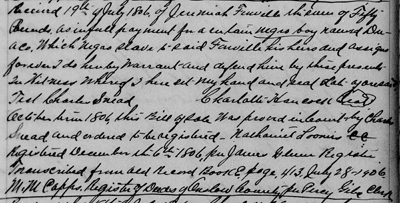 Received 19th of July 1806, of Jeremiah Fonville the sum of Fifty
Pounds, as in full payment for a certain negro boy named
which Negro slave to said Fonville his heirs and assigns
forever I do hereby Warrant and defend him by these presents
In Witness Whereof I have set my hand and seal
Test Charles Snead, Charlotte Seal
October term 1806 this Bill of Sale was proved in Court by Charles
Snead and ordered to be registered. Nathaniel Loomis CC
Registered December the 6th 1806, per James Glenn Register
Transcribed from old Record Book C page, 413, July 28-1906
M.M Capps, Register of Deeds of Onslow County, per Percy Clerk